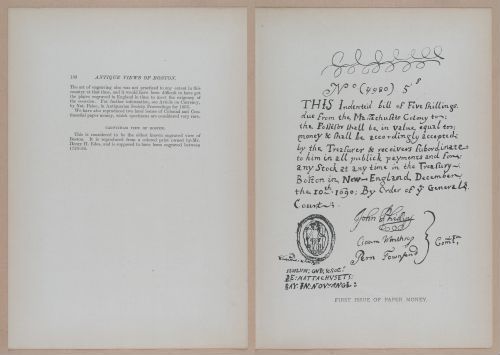 ANTIQUE VIEWS OF BOSTON.
The art of engraving also was not practised to any extent in this
country at that time, and it would have been difficult to have got
the plates engraved in England in time to meet the exigency of
the occasion. For further information, see Article on Currency,
by Nat. Paine, in Antiquarian Society Proceedings for 1866.
We have also reproduced two local issues of Colonial and Continental paper money, which specimens are considered very rare.
VIEW OF BOSTON.
This is considered to be the oldest known engraved view of
Boston. It is reproduced from a colored print owned by Mr.
Henry H. Edes, and is supposed to have been engraved between
No (4980) 5s
THIS Indented Bill of Five Shillings
due from the Massachusets Colony to
the Possessor shall be in value equal to
money & shall be accordingly accepted
by the Treasurer & receivers subordinate
to him in all publick payments and for
any Stock at any time in the Treasury
Boston in New-England, December
the 10th. 1690: By Order of ye General
Court:
Penn Townsend
Comtee
BAY: IN: NOV: ANGL:
FIRST ISSUE OF PAPER MONEY.